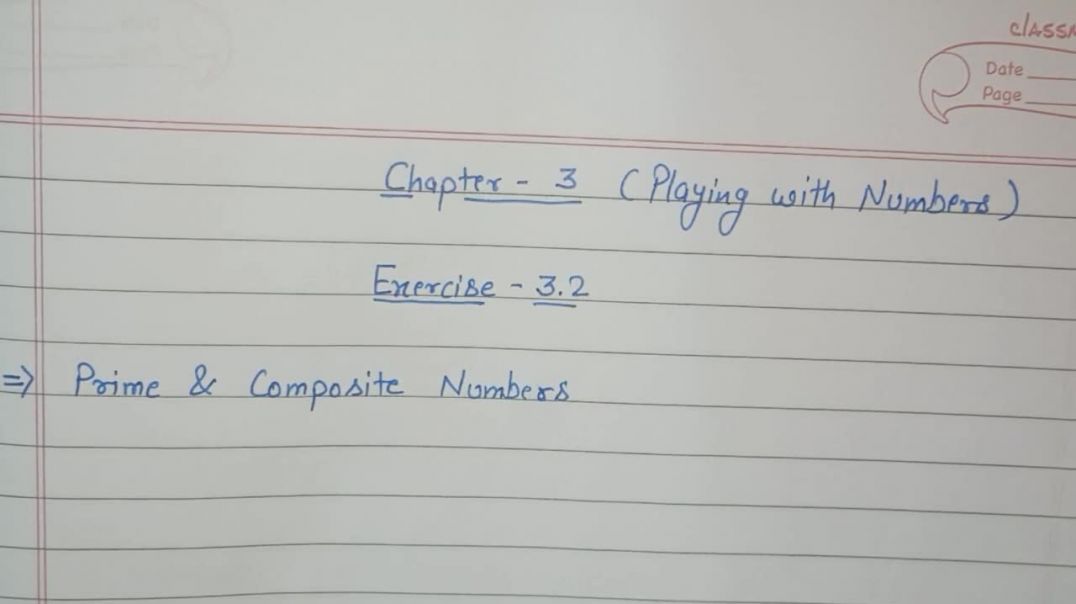 classm
Date
Page
Chapter - 3 (Playing with Numbers)
Exercise - 3.2
⇒ Prime & Composite Numbers